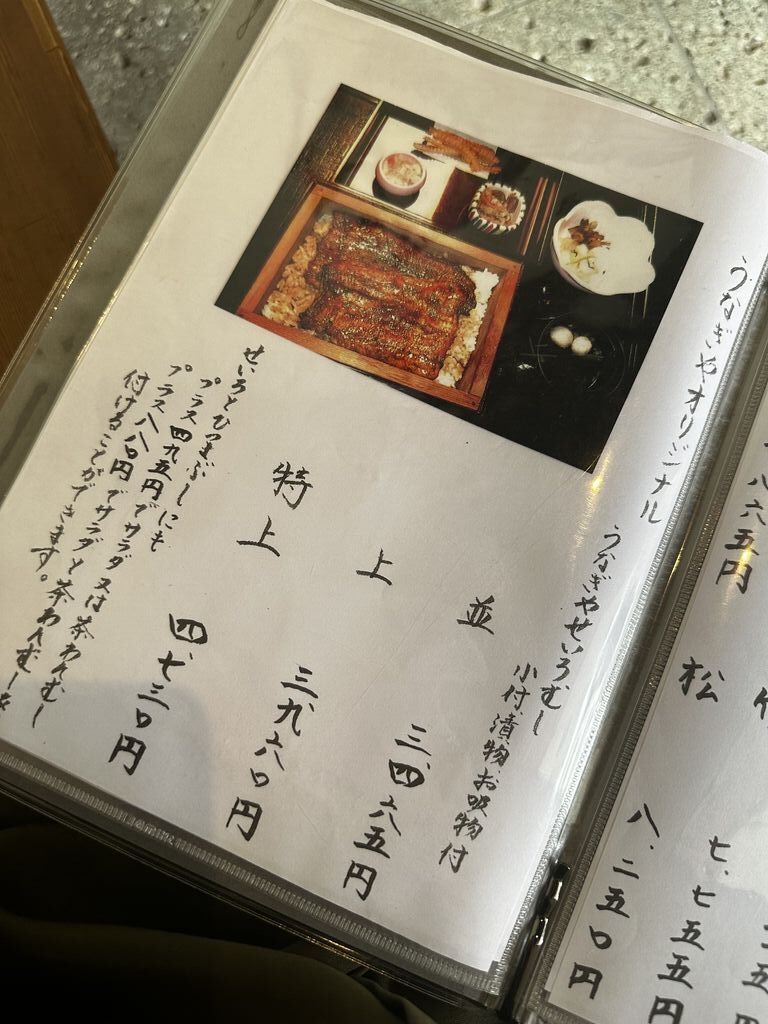 八六五円
七、七五五円
松 八、二五〇円
うなぎやオリジナル うなぎやせいろむし
小付、漬物、お吸物付
並 三、四六五円
上 三、九六〇円
特上 四、七三〇円
せいろとひつまぶしにも
プラス四九五円でサラダ又は茶わんむし
プラス八八〇円でサラダと茶わんむしを
付けることができます。